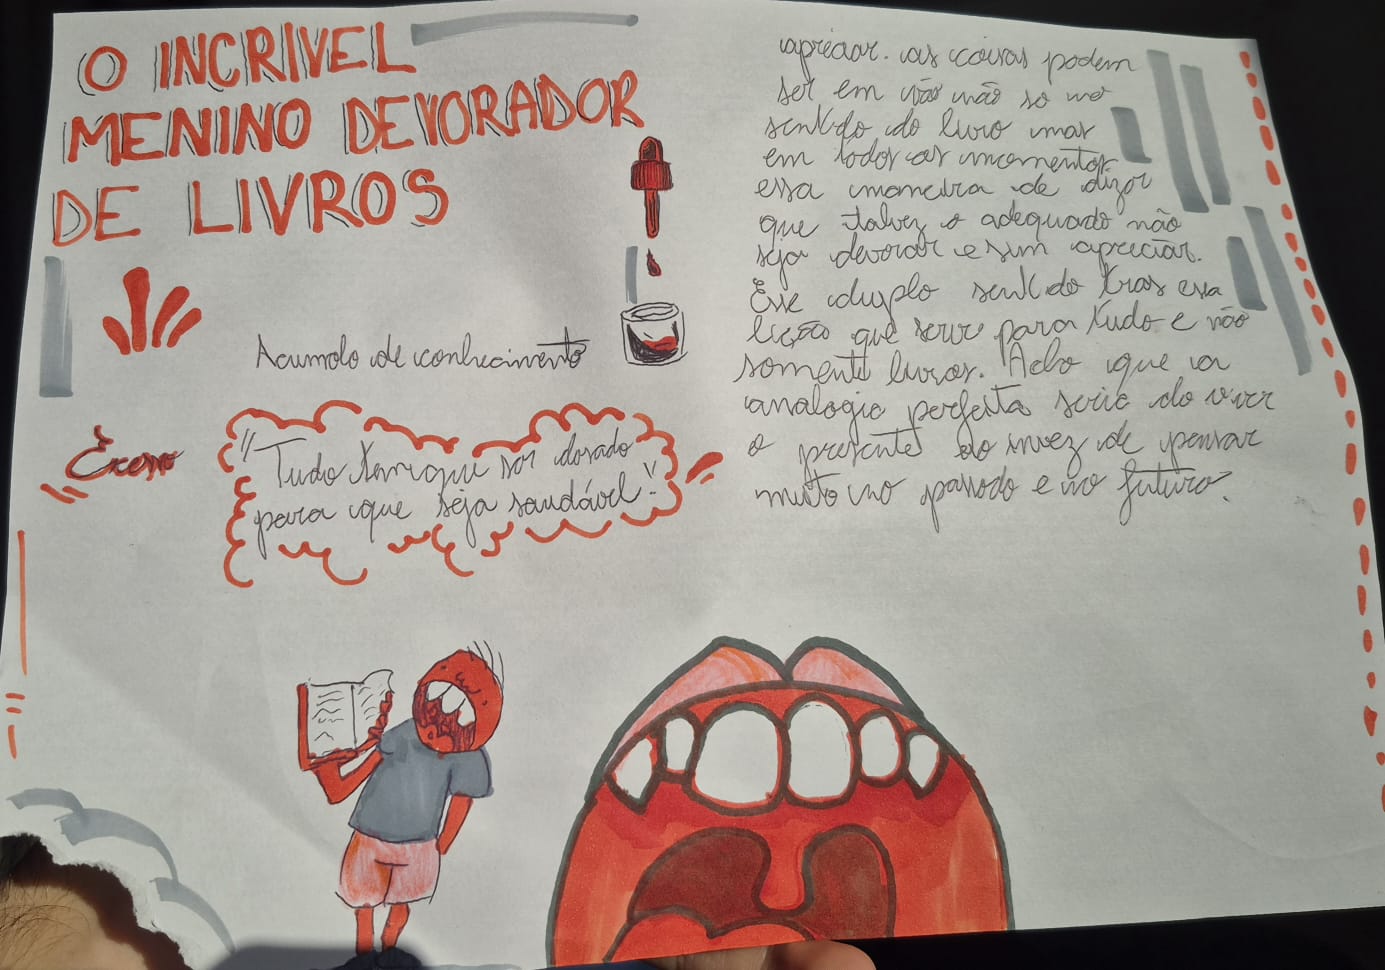 O INCRIVEL
MENINO DEVORADOR
DE LIVROS
Acumolo de conhecimento
Excesso
"Tudo tem que ser dosado
para que seja saudável."
apreciar. as coisas podem
ser em vão não so no
sentido do livro mas
em todos os momentos.
essa maneira de dizer
que talvez o adequado não
seja devorar e sim apreciar.
Esse duplo sentido tras essa
lição que serve para tudo e não
somente livros. Acho que a
analogia perfeita seria do viver
o presente ao invez de pensar
muito no passado e no futuro.